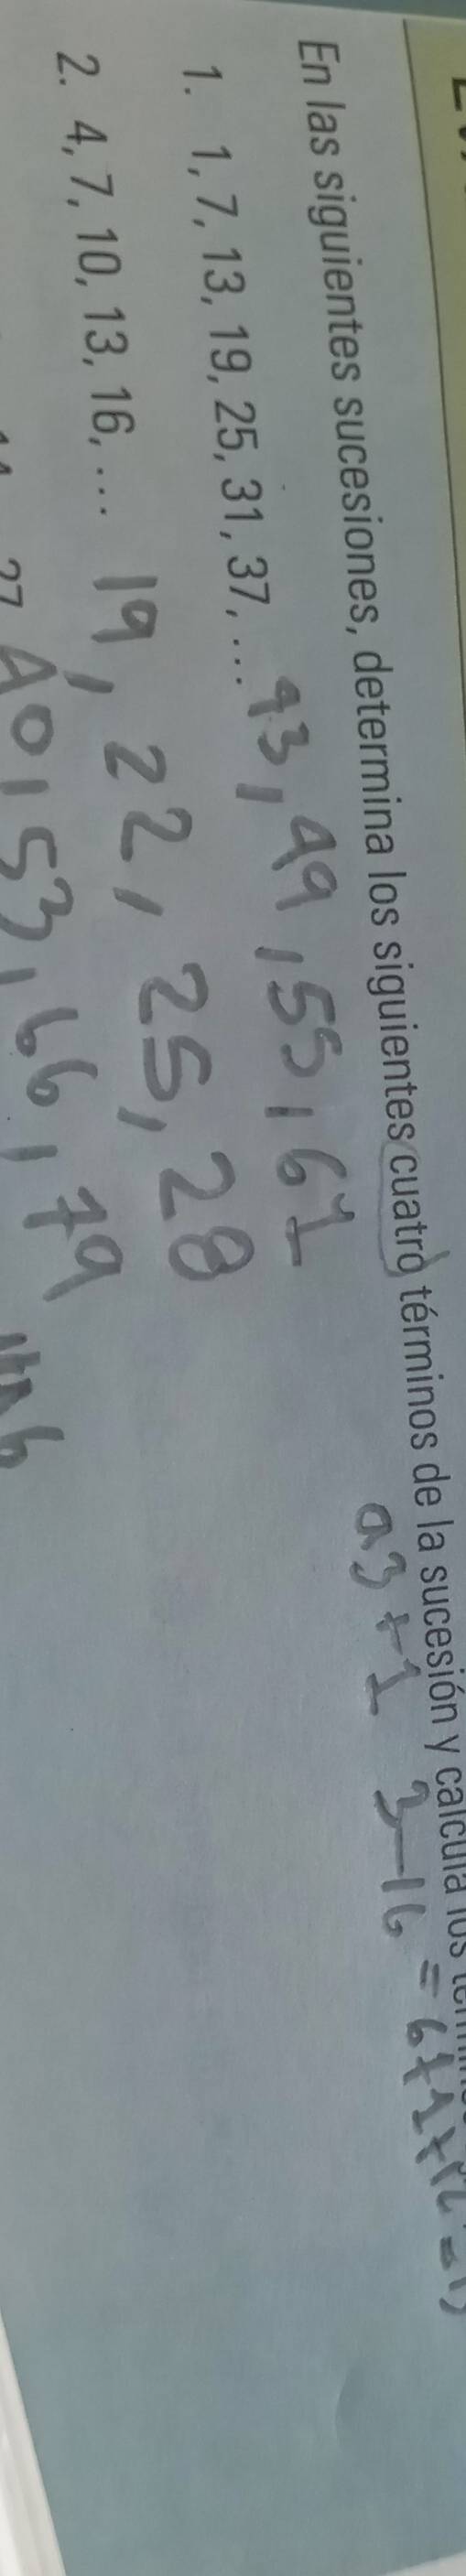 En las siguientes sucesiones, determina los siguientes cuatro términos de la sucesión y calcula los
a3+1 3-16 = 6+1+
1. 1, 7, 13, 19, 25, 31, 37, ... 43, 49, 55, 61
2. 4, 7, 10, 13, 16, ... 19, 22, 25, 28
27 40, 53, 66, 79